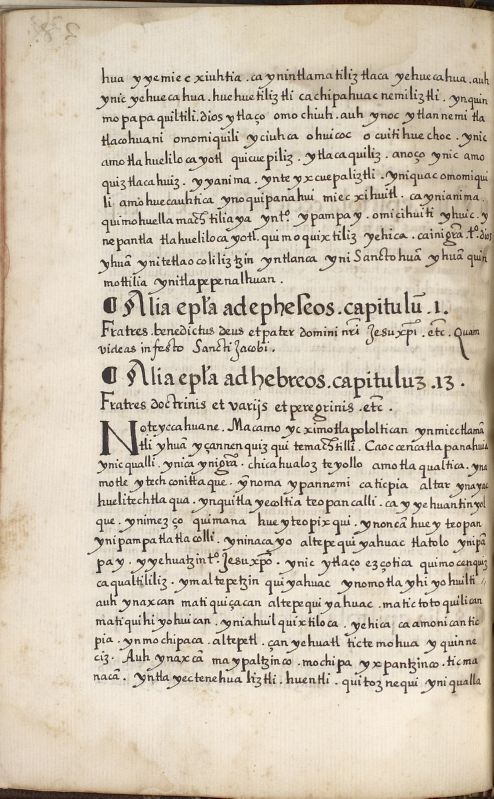 hua y ye miec xiuhtia . ca ynin tlamatiliztlaca ye huecahua . auh
ynic ye huecahua . huehuetiliztli ca chipahuac nemiliztli . yn quin
mopapaquiltili . dios ytlaço omochiuh . auh ynoc ytlan nemi tla
tlacohuani omomiquili yciuhca ohuicoc o cuitihuechoc . ynic
amo tlahuelilocayotl quicuepiliz . ytlacaquiliz . anoço ynic amo
quiztlacahuiz . yyanima . ynteyxcuepaliztli . yn iquac omomiqui
li amo huecauhtica yn oquipanahui miec xihuitl . ca yn ianima .
quimohuellamachtiliaya yn tº. ypampa y . omicihuiti yhuic . y
nepantla tlahuelilocayotl . quimoquixtiliz yehica . ca in igrã. tº. dios
yhuã yn itetlaocolilitzin yntlanca yni Sancto huã yhuã quin
mottilia yn itlapepenalhuan .
¶ Alia epl̃a ad epheseos . capitulũ . 1 .
Fratres . benedictus deus et pater domini nr̃i Jesu xp̃i . etc̃ . Quam
videas in festo Sancti Jacobi .
¶ Alia epl̃a ad hebreos . capituluz . 13 .
Fratres doctrinis et varijs et peregrinis . etc̃ .
Noteyccahuane . Macamo yc ximotlapololtican yn miectlamã
tli yhuã yçannenquizqui temachtilli . Ca oc cenca tlapanahuia
ynic qualli . ynica yn igrã . chicahualoz teyollo amo tlaqualtica . yna
motle ytech conittaque . yn oma ypan nemi ca ticpia altar ynayac
huelitech tlaqua . yn quitlayecoltia teopancalli . ca yyehuantin yol
que . ynimezço quimana huey teopixqui . ynoncã huey teopan
yn ipampa tlatlacolli . yn inacayo altepequiyahuac tlatolo yn ipã
pa y . yyehuatzin tº. Jesu xp̃o . ynic ytlaço ezçotica quimocenquiz
caqualtililiz . ymaltepetzin quiyahuac ynomotlayhiyohuilti //
auh ynaxcan ma tiquiçacan altepequiyahuac . ma tictotoquilican
ma tiquihiyohuican . yn iahuilquixtiloca . yehica ca amo nican tic
pia . ynmochipaca . altepetl . çan yehuatl tictemohua yquinne
ciz . Auh ynaxcã ma ypaltzinco . mochipa yxpantzinco . ticma
nacã . yntlayectenehualiztli . huentli . quitoznequi yniqualla